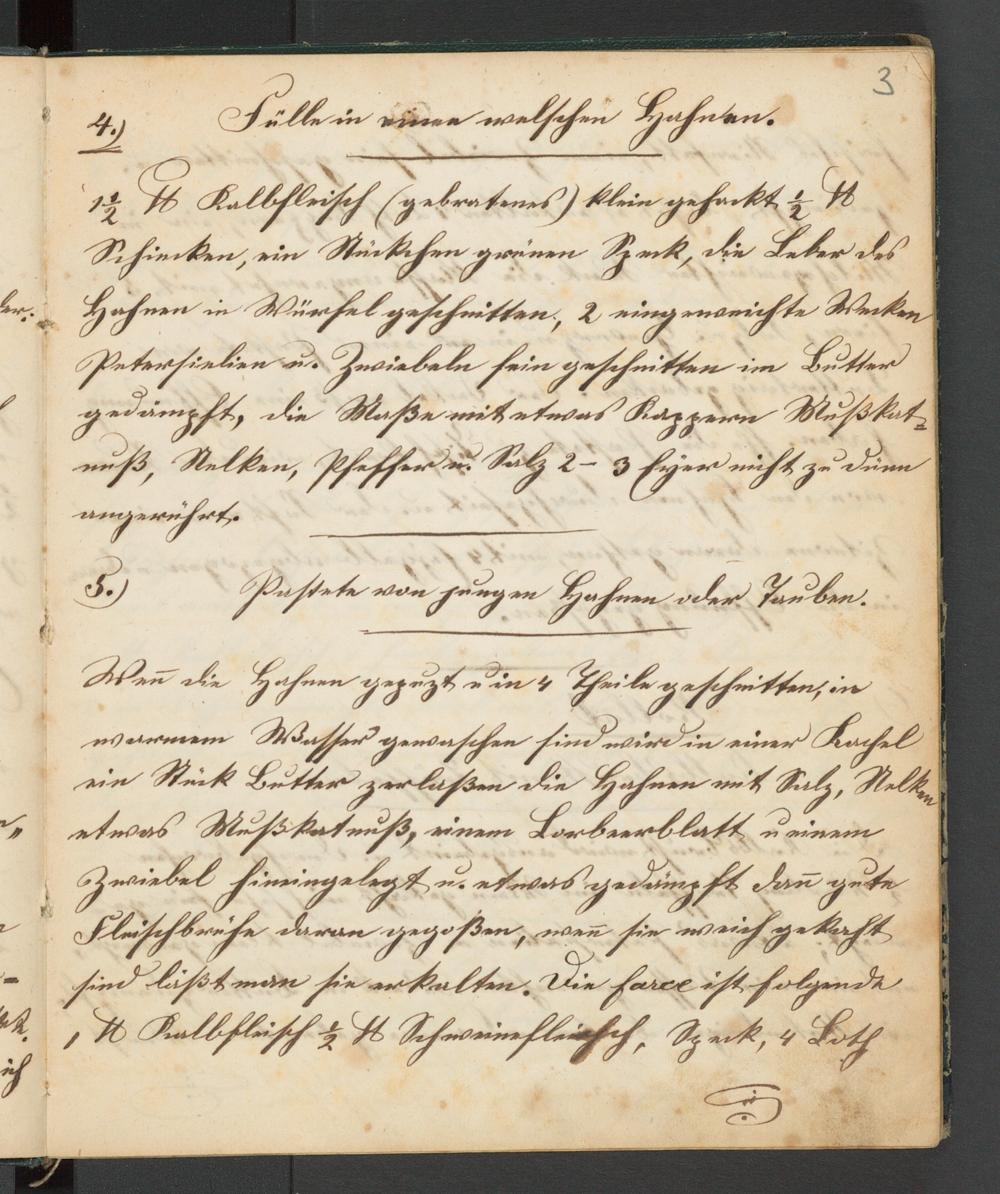 3
4.) Fülle in einen welschen Hahnen.
1 1/2 ℔ Kalbfleisch (gebratenes) klein gehackt 1/2 ℔
Schinken, ein Stückchen grünen Speck, die Leber des
Hahnen in Würfel geschnitten, 2 eingeweichte Wecken
Petersielien u. Zwiebeln fein geschnitten im Butter
gedämpft, die Maße mit etwas Kappern Mußkat=
nuß, Nelken, Pfeffer u. Salz 2 - 3 Eyer nicht zu dünn
angerührt.
5.) Pastete von jungen Hahnen oder Tauben.
Wen̄ die Hahnen gepuzt u in 4 Theile geschnitten, in
warmem Wasser gewaschen sind wird in einer Kachel
ein Stück Butter zerlaßen die Hahnen mit Salz, Nelken
etwas Mußkatnuß, einem Lorbeerblatt u einem
Zwiebel hineingelegt u. etwas gedämpft dan̄ gute
Fleischbrühe daran gegoßen, wen̄ sie weich gekocht
sind läßt man sie erkalten. Die farce ist folgende
1 ℔ Kalbfleisch 1/2 ℔ Schweinefleisch, Speck, 4 Loth